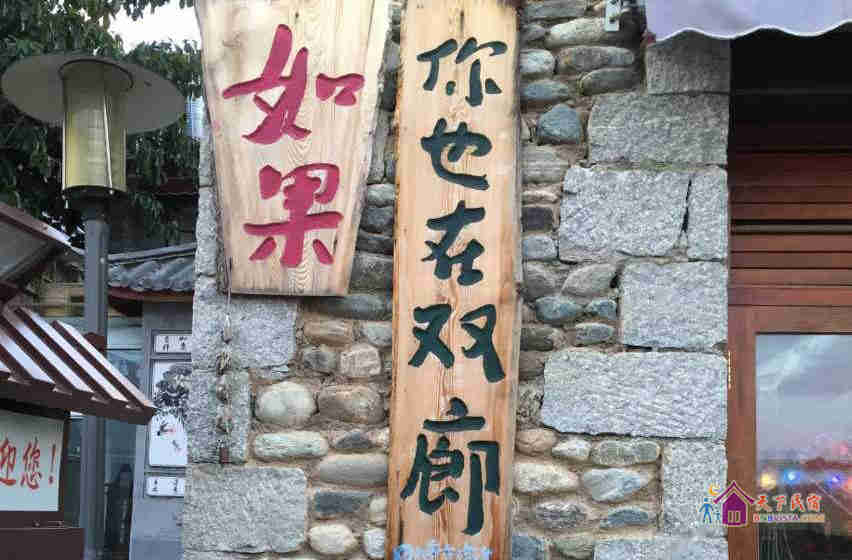 如果
你也在双廊
迎您!
天下民宿